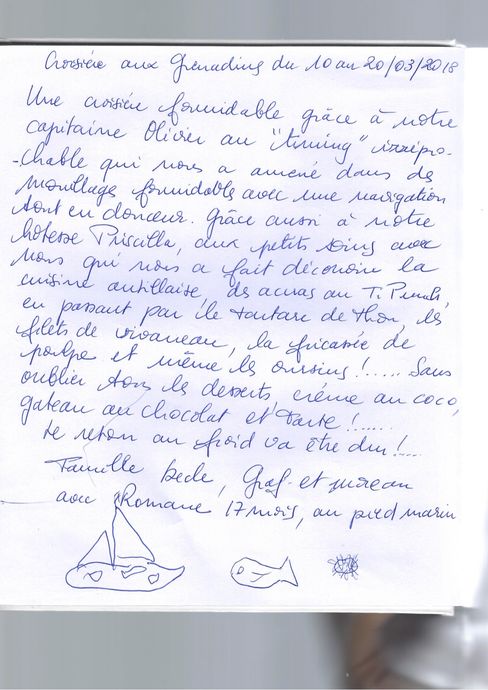 Croisière aux Grenadines du 10 au 20/03/2018
Une croisière formidable grâce à notre
capitaine Olivier au "timing" irrépro-
-chable qui nous a amené dans des
mouillages formidables avec une navigation
tout en douceur. Grâce aussi à notre
hôtesse Priscilla, aux petits soins avec
nous qui nous a fait découvrir la
cuisine antillaise, des acras au Ti Punch,
en passant par le tartare de thon, les
filets de vivaneau, la fricassée de
poulpe et même les oursins !..... Sans
oublier tous les desserts, crème au coco,
gateau au chocolat et tarte !......
Le retour au froid va être dur !...
Famille , Graf et
avec Romane 17 mois, au pied marin